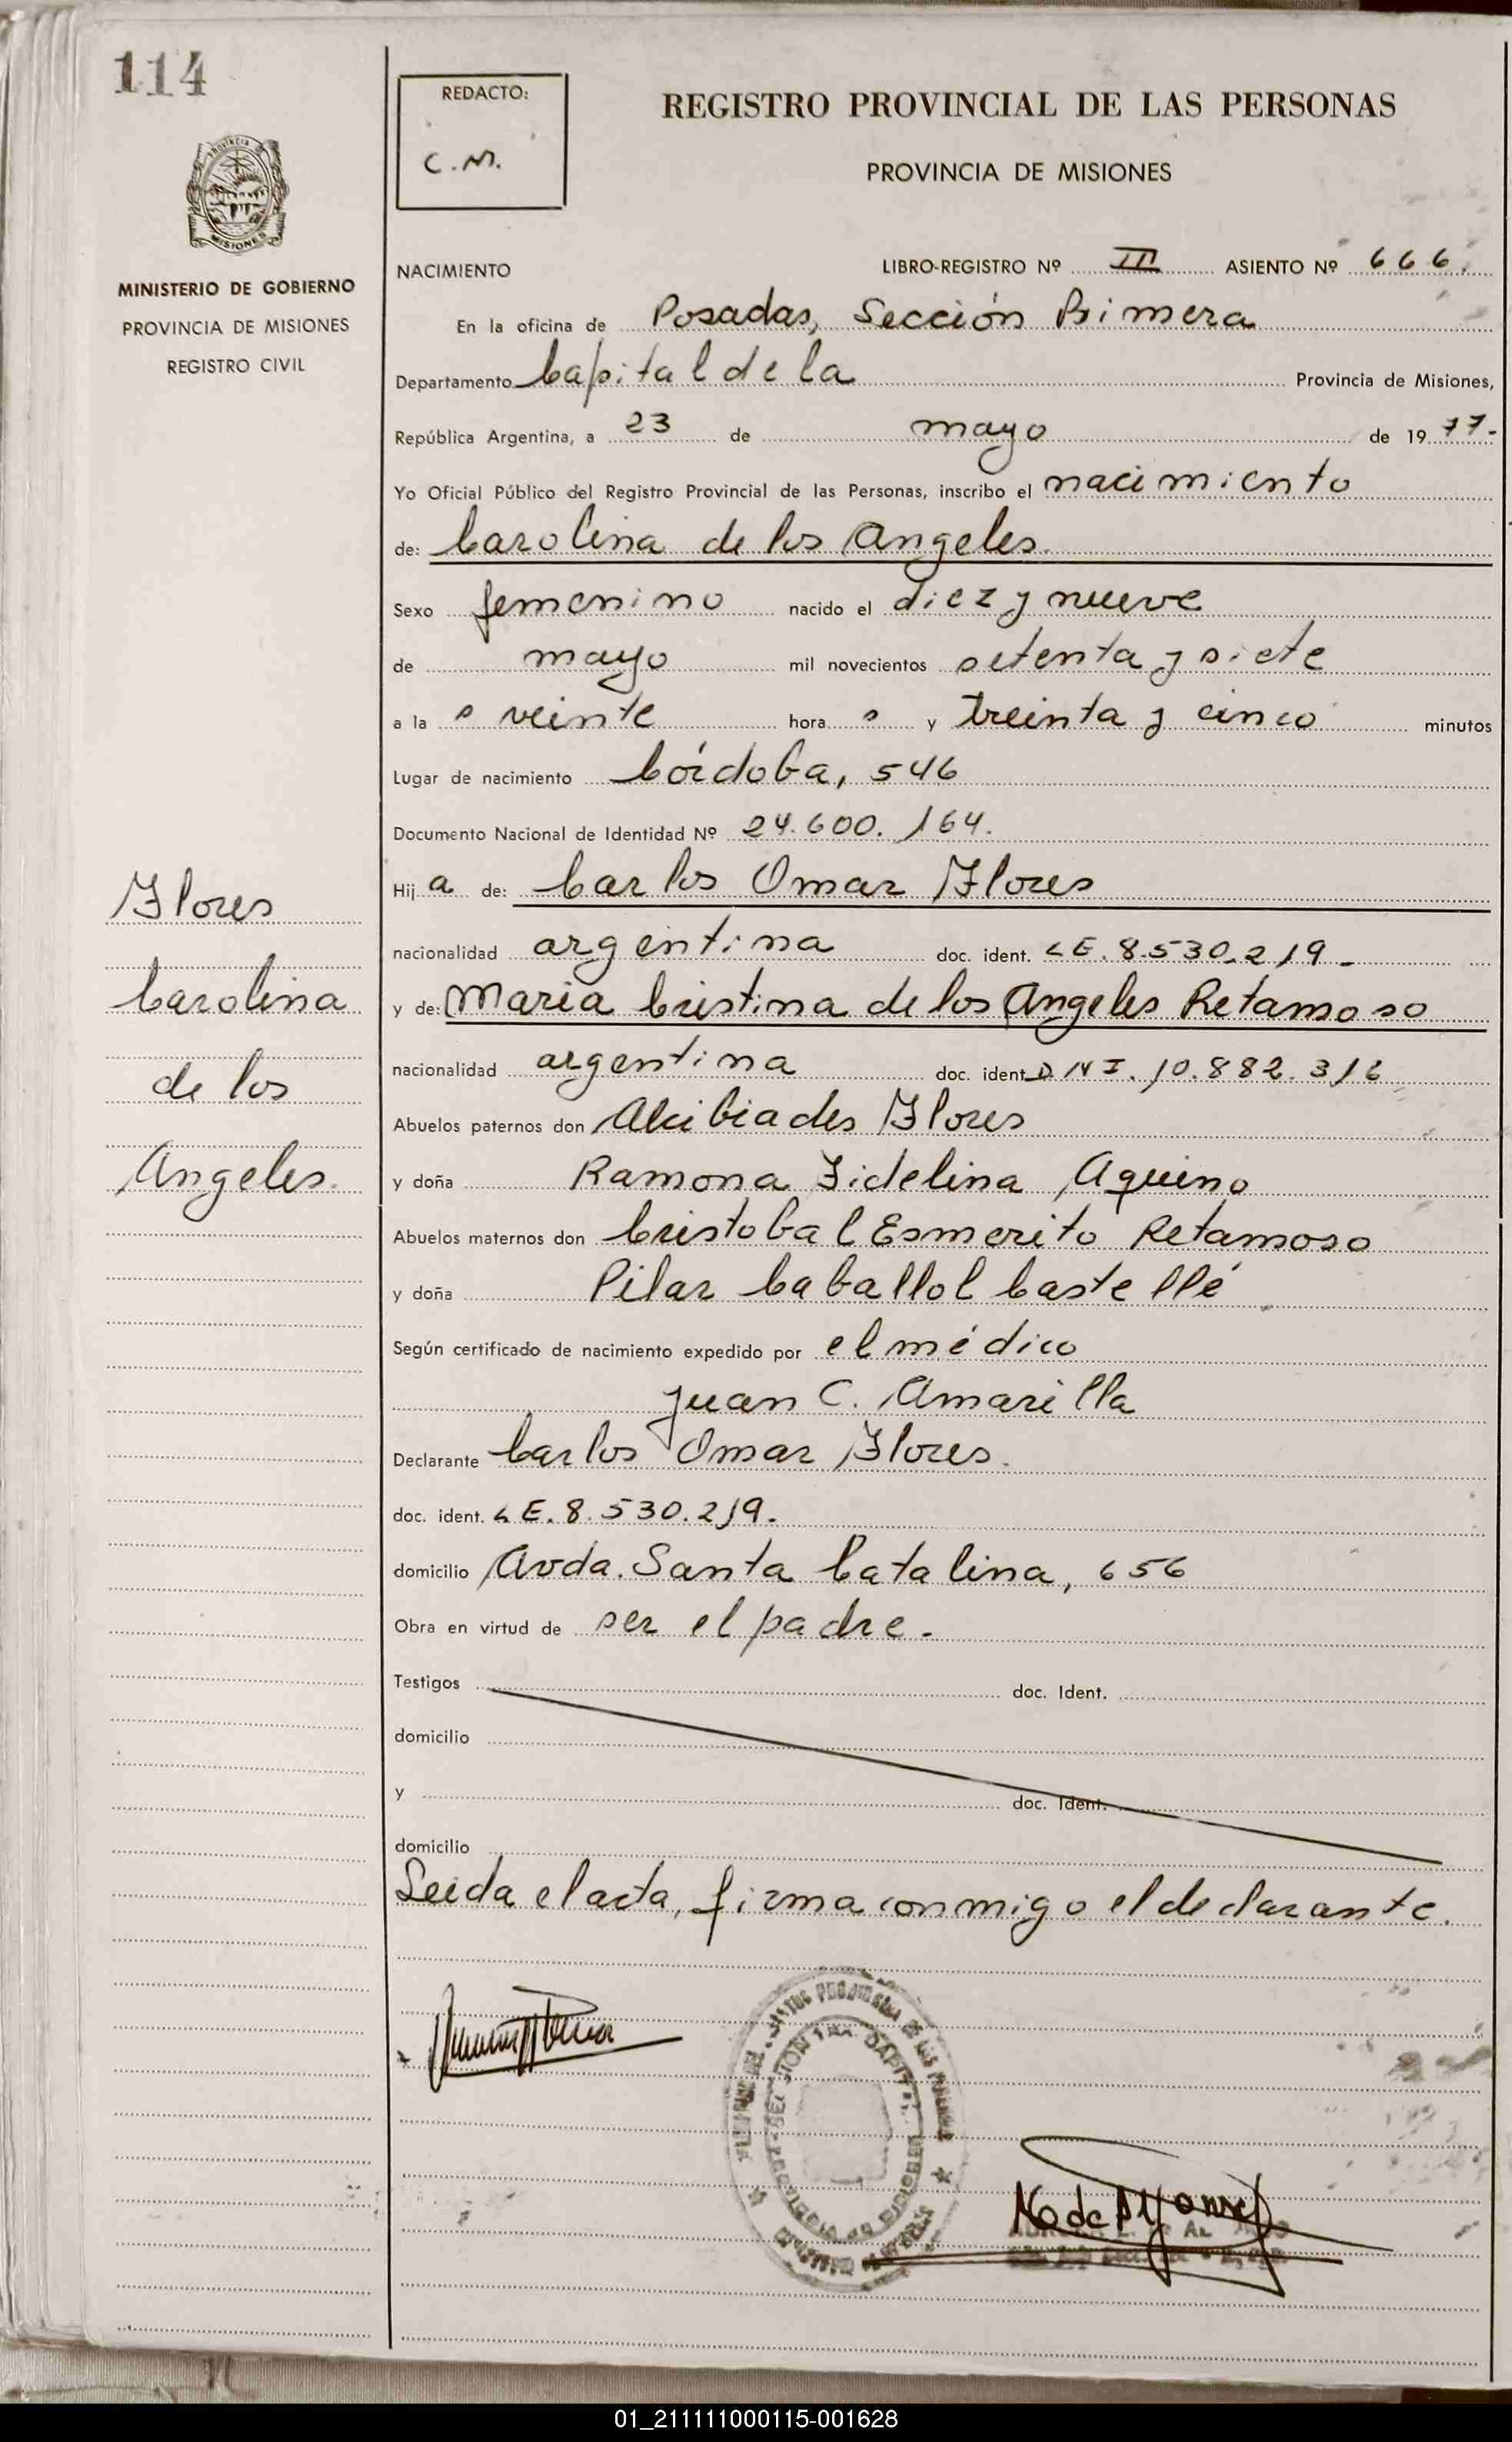 114
REDACTO:
C.M.
REGISTRO PROVINCIAL DE LAS PERSONAS
PROVINCIA DE MISIONES
MISIONES
MINISTERIO DE GOBIERNO
PROVINCIA DE MISIONES
REGISTRO CIVIL
NACIMIENTO
LIBRO-REGISTRO Nº III ASIENTO Nº 666.
En la oficina de Posadas, Sección Primera
Departamento Capital de la Provincia de Misiones,
República Argentina, a 23 de mayo de 1977.-
Yo Oficial Público del Registro Provincial de las Personas, inscribo el nacimiento
de: Carolina de los Angeles.
Sexo femenino nacido el diez y nueve
de mayo mil novecientos setenta y siete
a la s veinte hora s y treinta y cinco minutos
Lugar de nacimiento Córdoba, 546
Documento Nacional de Identidad Nº 24.600.164.
Hij a de: Carlos Omar Flores
nacionalidad argentina doc. ident. LE. 8.530.219.-
y de: Maria Cristina de los Angeles Retamoso
nacionalidad argentina doc. ident. D.N.I. 10.882.316
Abuelos paternos don Alcibiades Flores
y doña Ramona Fidelina Aquino
Abuelos maternos don Cristobal Esmerito Retamoso
y doña Pilar Caballol Castellé
Según certificado de nacimiento expedido por el médico
Juan C. Amarilla
Declarante Carlos Omar Flores.
doc. ident. LE. 8.530.219.
domicilio Avda. Santa Catalina, 656
Obra en virtud de ser el padre.-
Testigos doc. Ident.
domicilio
y doc. Ident.
domicilio
Leida el acta, firma conmigo el declarante.
Flores
Carolina
de los
Angeles.
01_211111000115-001628